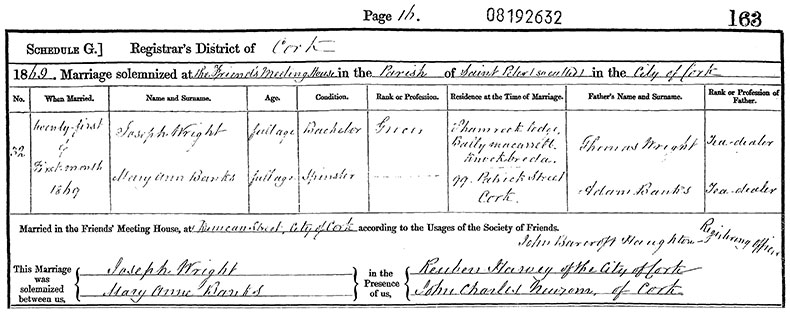 Page 16.
08192632
163
SCHEDULE G.] Registrar's District of Cork
1869. Marriage solemnized at the Friends Meeting House in the Parish of Saint Peter (so called) in the City of Cork
No. When Married. Name and Surname. Age. Condition. Rank or Profession. Residence at the Time of Marriage. Father's Name and Surname. Rank or Profession of Father.
32 twenty-first of Sixth-month 1869
Joseph Wright full age Bachelor Grocer Shamrock Lodge, Ballymacarrett Knockbreda. Thomas Wright Tea-dealer
Mary Ann Banks full age Spinster 99. Patrick Street Cork. Adam Banks Tea-dealer
Married in the Friends' Meeting House, at Duncan Street, City of Cork according to the Usages of the Society of Friends.
John Barcroft Haughton Registering Officer
This Marriage was solemnized between us,
Joseph Wright
Mary Anne Banks
in the Presence of us,
Reuben Harvey of the City of Cork
John Charles Newsom, of Cork